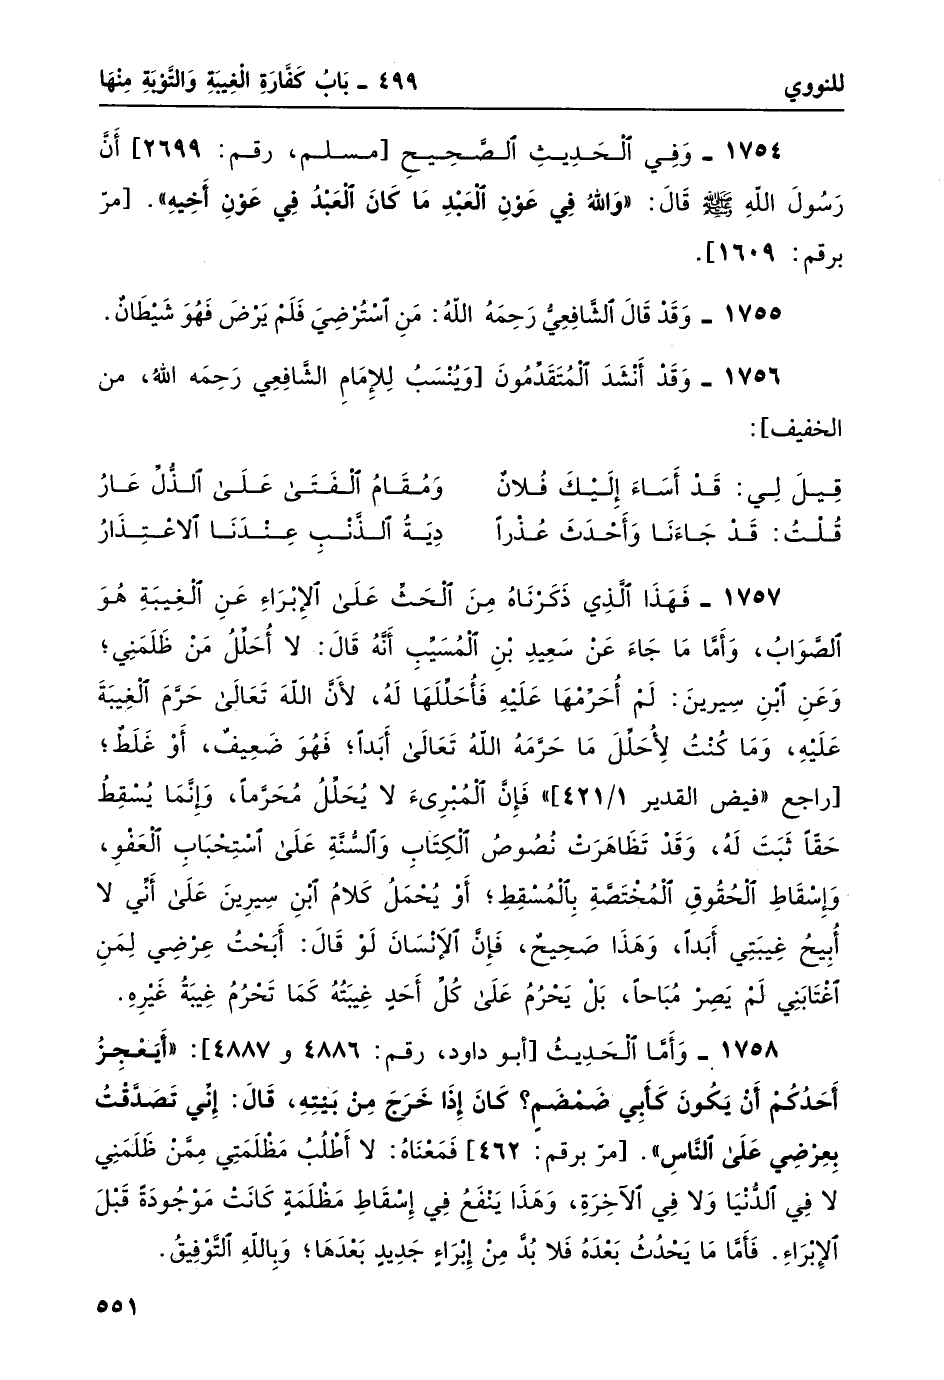 للنووي ٤٩٩ ـ بَابُ كَفَّارَةِ الْغِيبَةِ وَالتَّوْبَةِ مِنْهَا
١٧٥٤ ـ وَفِي ٱلْحَدِيثِ ٱلصَّحِيحِ [مسلم، رقم: ٢٦٩٩] أَنَّ
رَسُولَ اللّهِ ﷺ قَالَ: «وَاللهُ فِي عَوْنِ ٱلْعَبْدِ مَا كَانَ ٱلْعَبْدُ فِي عَوْنِ أَخِيهِ». [مرّ
برقم: ١٦٠٩].
١٧٥٥ ـ وَقَدْ قَالَ ٱلشَّافِعِيُّ رَحِمَهُ اللّهُ: مَنِ ٱسْتُرْضِيَ فَلَمْ يَرْضَ فَهُوَ شَيْطَانٌ.
١٧٥٦ ـ وَقَدْ أَنْشَدَ ٱلْمُتَقَدِّمُونَ [وَيُنْسَبُ لِلإِمَامِ الشَّافِعِي رَحِمَه اللهُ، من
الخفيف]:
قِيلَ لِي: قَدْ أَسَاءَ إِلَيْكَ فُلانٌ وَمُقَامُ ٱلْفَتَىٰ عَلَىٰ ٱلذُّلِّ عَارُ
قُلْتُ: قَدْ جَاءَنَا وَأَحْدَثَ عُذْراً دِيَةُ ٱلذَّنْبِ عِنْدَنَا ٱلاعْتِذَارُ
١٧٥٧ ـ فَهَذَا ٱلَّذِي ذَكَرْنَاهُ مِنَ ٱلْحَثِّ عَلَىٰ ٱلإِبْرَاءِ عَنِ ٱلْغِيبَةِ هُوَ
ٱلصَّوَابُ، وَأَمَّا مَا جَاءَ عَنْ سَعِيدِ بْنِ ٱلْمُسَيِّبِ أَنَّهُ قَالَ: لا أُحَلِّلُ مَنْ ظَلَمَنِي؛
وَعَنِ ٱبْنِ سِيرِينَ: لَمْ أُحَرِّمْهَا عَلَيْهِ فَأُحَلِّلَهَا لَهُ، لأَنَّ اللهَ تَعَالَىٰ حَرَّمَ ٱلْغِيبَةَ
عَلَيْهِ، وَمَا كُنْتُ لِأُحَلِّلَ مَا حَرَّمَهُ اللهُ تَعَالَىٰ أَبَداً؛ فَهُوَ ضَعِيفٌ، أَوْ غَلَطٌ؛
[راجع «فيض القدير ٤٢١/١]» فَإِنَّ ٱلْمُبْرِىءَ لا يُحَلِّلُ مُحَرَّماً، وَإِنَّمَا يُسْقِطُ
حَقّاً ثَبَتَ لَهُ، وَقَدْ تَظَاهَرَتْ نُصُوصُ ٱلْكِتَابِ وَٱلسُّنَّةِ عَلَىٰ ٱسْتِحْبَابِ ٱلْعَفْوِ،
وَإِسْقَاطِ ٱلْحُقُوقِ ٱلْمُخْتَصَّةِ بِٱلْمُسْقِطِ؛ أَوْ يُحْمَلُ كَلامُ ٱبْنِ سِيرِينَ عَلَىٰ أَنِّي لا
أُبِيحُ غِيبَتِي أَبَداً، وَهَذَا صَحِيحٌ، فَإِنَّ ٱلإِنْسَانَ لَوْ قَالَ: أَبَحْتُ عِرْضِي لِمَنِ
ٱغْتَابَنِي لَمْ يَصِرْ مُبَاحاً، بَلْ يَحْرُمُ عَلَىٰ كُلِّ أَحَدٍ غِيبَتُهُ كَمَا تَحْرُمُ غِيبَةُ غَيْرِهِ.
١٧٥٨ ـ وَأَمَّا ٱلْحَدِيثُ [أبو داود، رقم: ٤٨٨٦ و ٤٨٨٧]: «أَيَعْجِزُ
أَحَدُكُمْ أَنْ يَكُونَ كَأَبِي ضَمْضَمٍ؟ كَانَ إِذَا خَرَجَ مِنْ بَيْتِهِ، قَالَ: إِنِّي تَصَدَّقْتُ
بِعِرْضِي عَلَىٰ ٱلنَّاسِ». [مرّ برقم: ٤٦٢] فَمَعْنَاهُ: لا أَطْلُبُ مَظْلَمَتِي مِمَّنْ ظَلَمَنِي
لا فِي ٱلدُّنْيَا وَلا فِي ٱلآخِرَةِ، وَهَذَا يَنْفَعُ فِي إِسْقَاطِ مَظْلَمَةٍ كَانَتْ مَوْجُودَةً قَبْلَ
ٱلإِبْرَاءِ. فَأَمَّا مَا يَحْدُثُ بَعْدَهُ فَلا بُدَّ مِنْ إِبْرَاءٍ جَدِيدٍ بَعْدَهَا؛ وَبِاللهِ ٱلتَّوْفِيقُ.
٥٥١